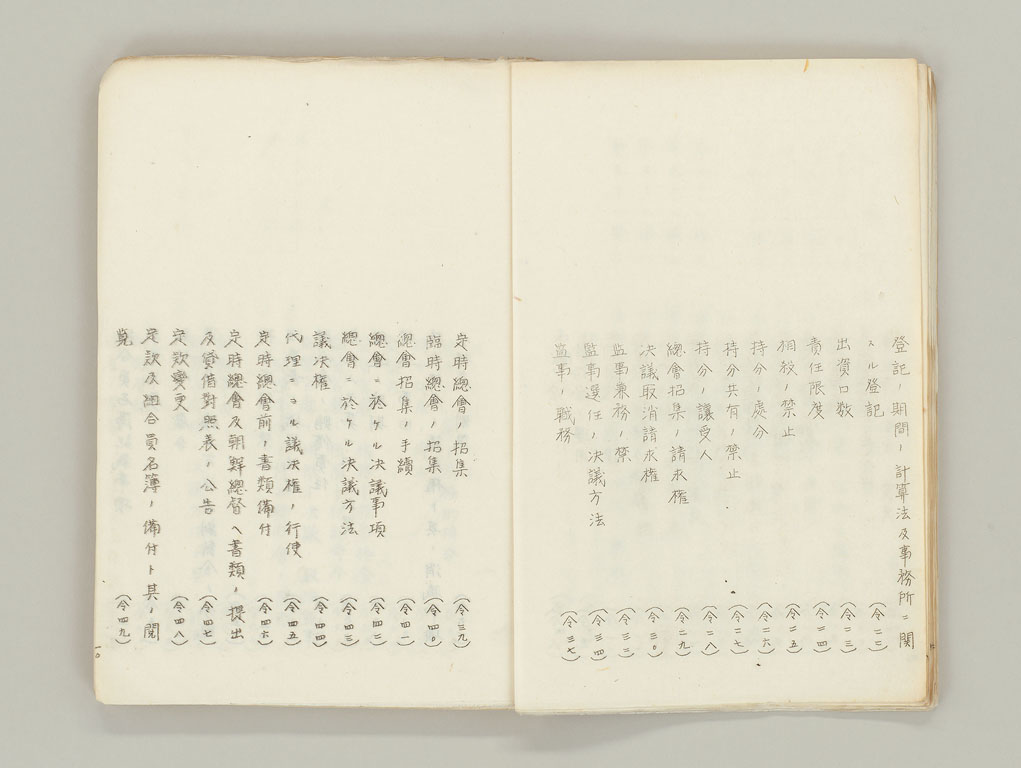 登記ノ期間ノ計算法及事務所ニ関
スル登記(令二二)
出資口数(令二三)
責任限度(令二四)
相殺ノ禁止(令二五)
持分ノ處分(令二六)
持分共有ノ禁止(令二七)
持分ノ讓受人(令二八)
總會招集ノ請求権(令二九)
決議取消請求権(令三〇)
監事兼務ノ禁(令三三)
監事選任ノ決議方法(令三四)
監事ノ職務(令三七)
定時總會ノ招集(令三九)
臨時總會ノ招集(令四〇)
總會招集ノ手續(令四一)
總會ニ於ケル決議事項(令四二)
總會ニ於ケル決議方法(令四三)
議决権(令四四)
代理ニヨル議决権ノ行使(令四五)
定時總會前ノ書類備付(令四六)
定時總會及朝鮮總督ヘ書類ノ提出
及貸借對照表ノ公告(令四七)
定款變更(令四八)
定款及組合員名簿ノ備付ト其ノ閲
覧(令四九)
一〇